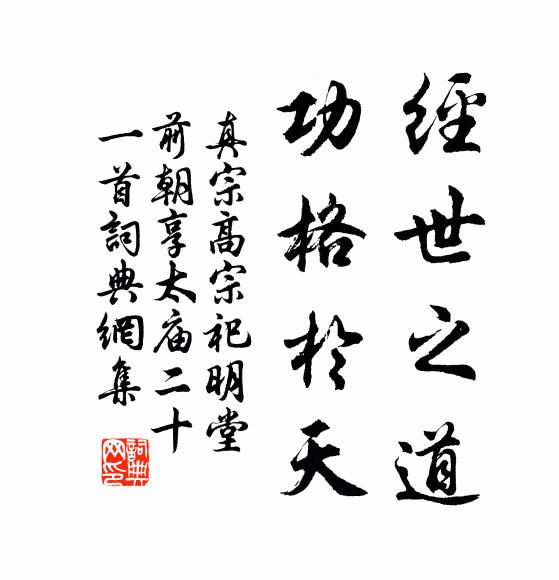 經世之道
功格於天
真宗高宗祀明堂
前朝享太庙二十
一首詞典網集
詞典
网印